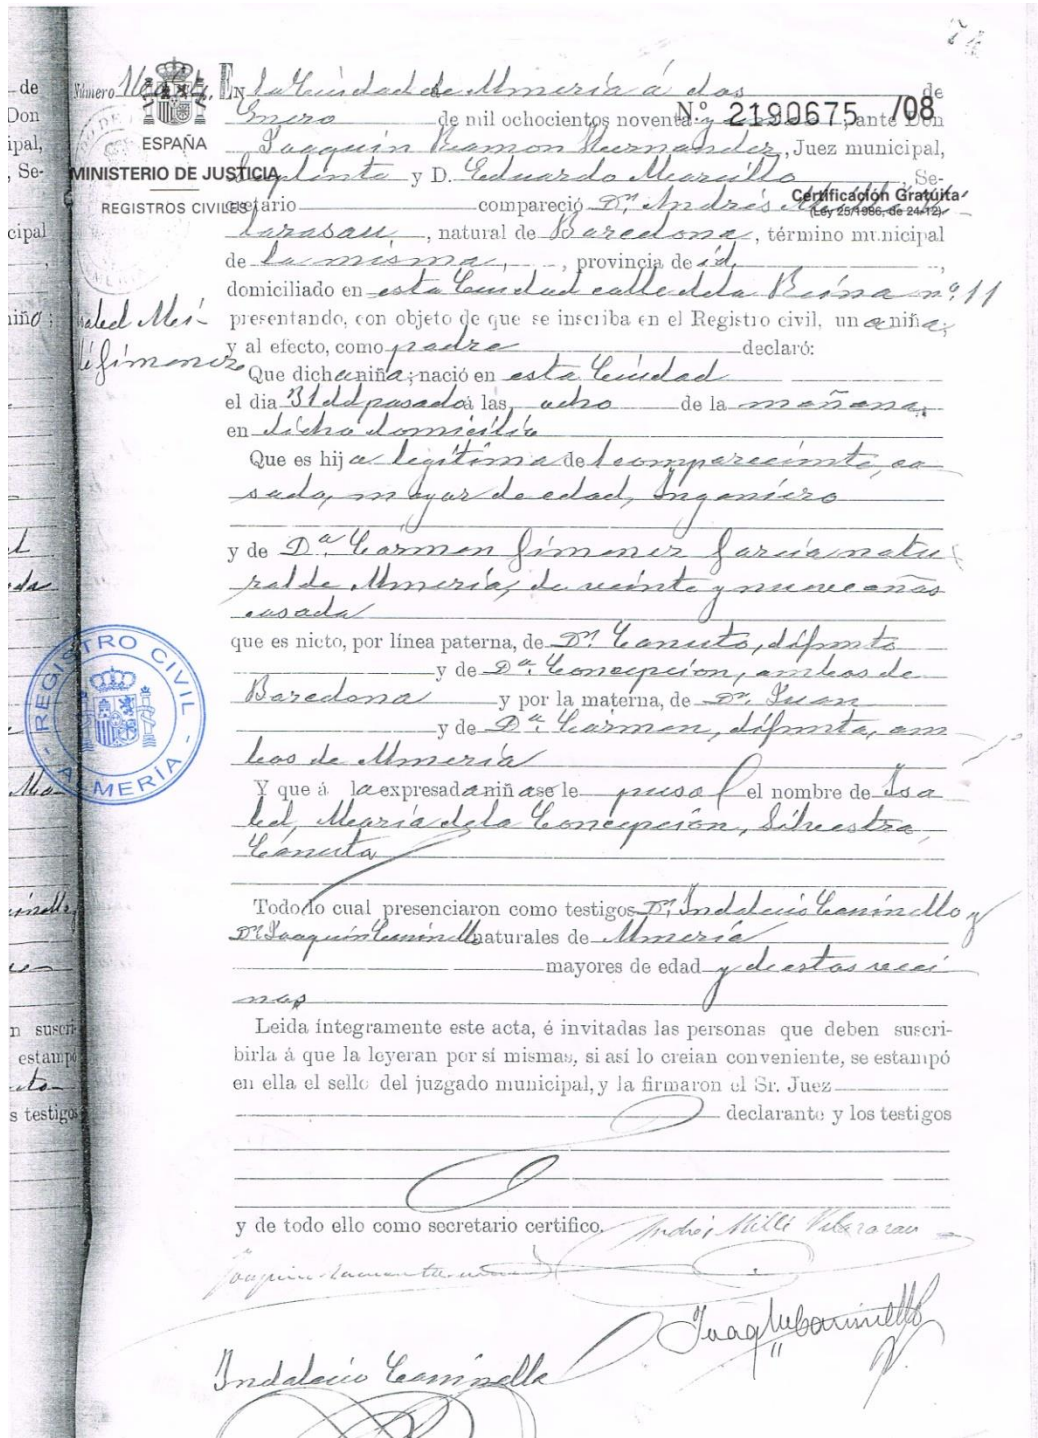 74
Número
EN la Ciudad de Almería á dos de
Enero de mil ochocientos noventa y, ante Don
Nº 2190675 /08
ESPAÑA
Joaquín Ramon Hernandez, Juez municipal,
MINISTERIO DE JUSTICIA
Suplente y D. Eduardo Morcillo, Se-
Certificación Gratuita
(Ley 25/1986, de 24-12)
REGISTROS CIVILES
cretario compareció Dn. Andrés Millé Vi
larasau, natural de Barcelona, término municipal
de la misma, provincia de id,
domiciliado en esta Ciudad calle de la Reina nº. 11
presentando, con objeto de que se inscriba en el Registro civil, un a niña,
y al efecto, como padre declaró:
Isabel Mi-
llé Gimenez
Que dicha niña; nació en esta Ciudad
el dia 31 del pasado á las ocho de la mañana,
en dicho domicilio
Que es hija legítima del compareciente, ca
sado, mayor de edad, Ingeniero
y de Dª. Carmen Gimenez Garcia natu
ral de Almería, de veinte y nueve años
casada
que es nieto, por línea paterna, de Dn. Canuto, difunto
y de Dª. Concepcion, ambos de
Barcelona y por la materna, de Dn. Juan
y de Dª. Carmen, difunta, am
bos de Almería
Y que á la expresada niña se le puso el nombre de Isa
bel, María de la Concepción, Silvestra,
Canuta
Todo lo cual presenciaron como testigos Dn. Indalecio Caminello y
Dn. Joaquín Caminello naturales de Almería
mayores de edad y de estos veci
nos
Leida íntegramente este acta, é invitadas las personas que deben suscri-
birla á que la leyeran por sí mismas, si así lo creian conveniente, se estampó
en ella el sello del juzgado municipal, y la firmaron el Sr. Juez
declarante y los testigos
y de todo ello como secretario certifico.
Andrés Millé Vilarasau
Joaquin
Joaqn Caminello
Indalecio Caminello
REGISTRO CIVIL
- ALMERÍA -
de
Don
ipal,
, Se-
cipal
niño;
n suscri-
estampó
s testigos